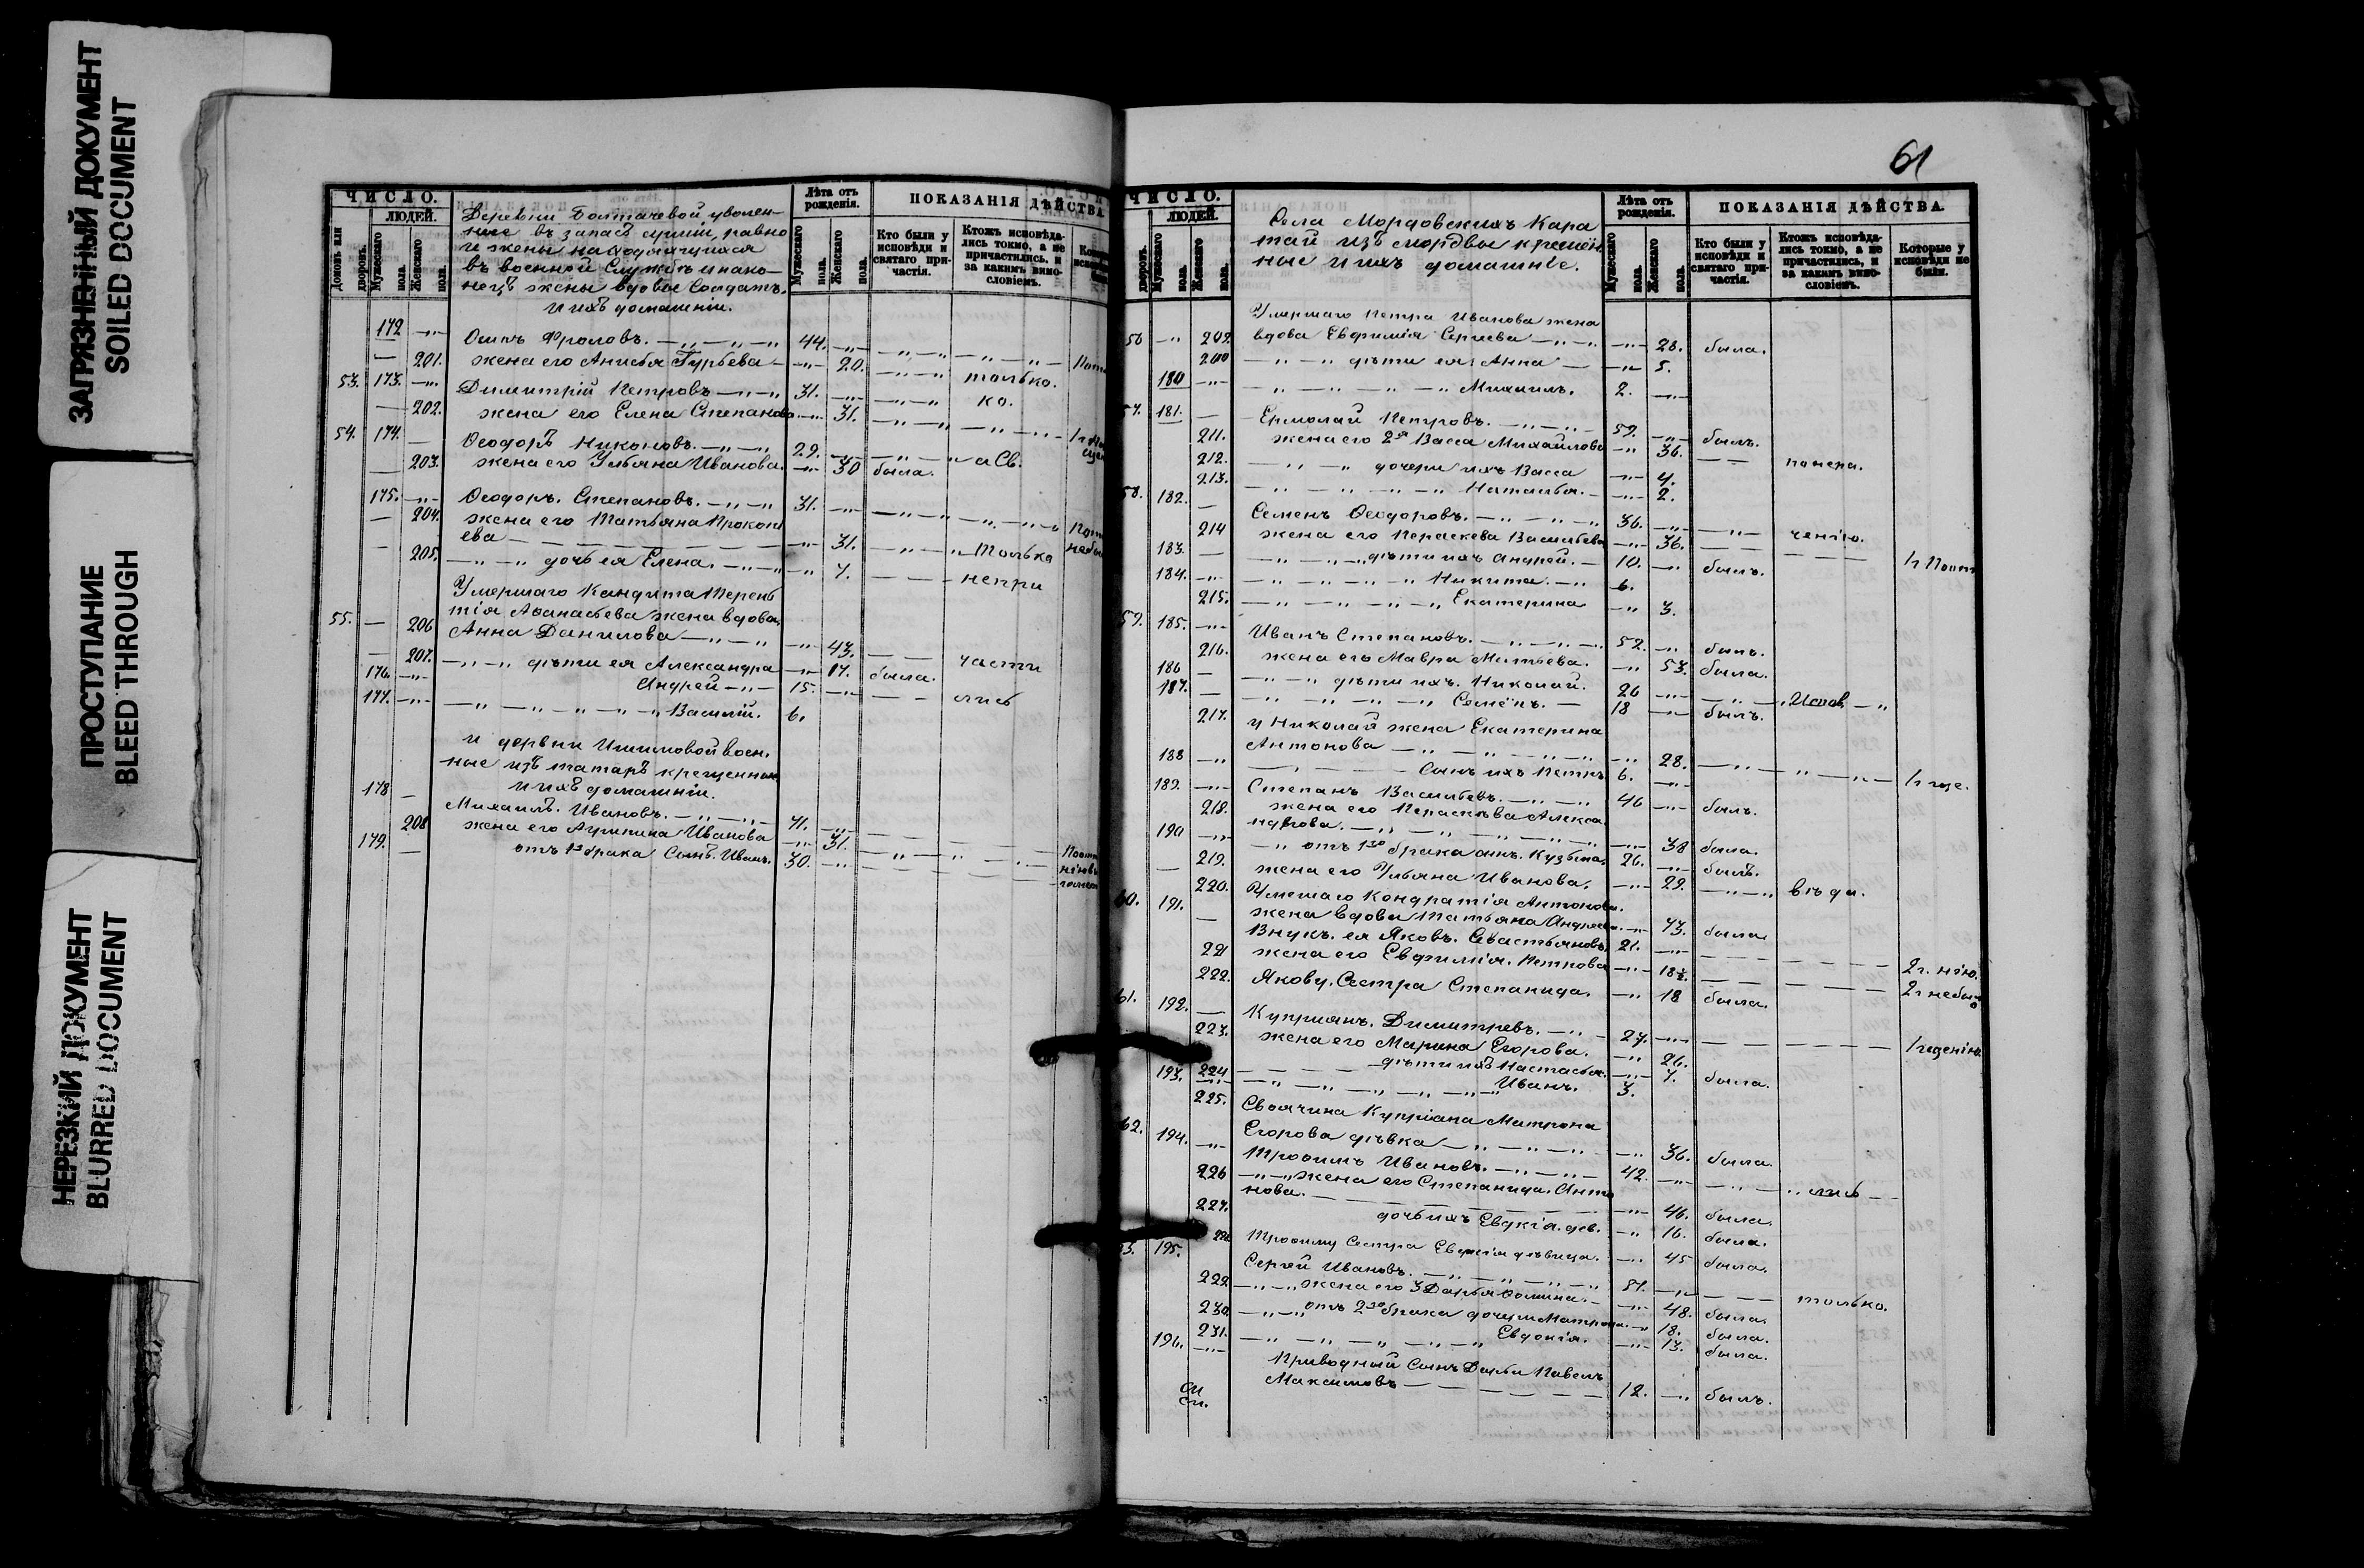 ЗАГРЯЗНЕННЫЙ ДОКУМЕНТ
SOILED DOCUMENT
ПРОСТУПАНИЕ
BLEED THROUGH
НЕРЕЗКИЙ ДОКУМЕНТ
BLURRED DOCUMENT
ЧИСЛО.
ЛЮДЕЙ.
Домовъ или дворовъ.
Мужескаго пола.
Женскаго пола.
Лѣта отъ рожденія.
Мужескаго пола.
Женскаго пола.
ПОКАЗАНІЯ ДѢЙСТВА
Кто были у исповѣди и святаго причастія.
Ктожъ исповѣдались токмо, а не причастились, и за какимъ винословіемъ.
Деревни Болтачевой уволен-
ные въ запасъ армiи, равно
и жены находящихся
въ военной Службѣ и нако-
нецъ жены вдовые Солдатъ.
и ихъ домашніи.
172 —„— Осипъ Фроловъ. —„—„—„ 44. —„—
— 201. жена его Анисья Гурьева —„— 20.
53. 173. —„— Димитрій Петровъ —„—„ 31. —„— только.
— 202. жена его Елена Степанова —„— 31. ко.
54. 174. — Ѳеодоръ Никоновъ. —„—„ 29. —„—
— 203. жена его Ульяна Иванова. —„— 30 была. а Св.
175. —„— Ѳеодоръ. Степановъ. —„—„ 31. —„—
— 204. жена его Татьяна Прокопь
ева — — — —„— 31. Только
— 205. —„—„ дочь ея Елена. —„—„ 7. — — — непри
Умершаго Кандита Терень
тія Аѳанасьева жена вдова,
55. — 206 Анна Данилова —„—„ —„— 43. — — части
— 207. —„—„ дѣти ея Александра —„— 17. была.
176. —„— Андрей —„— 15. —„— — — лись
177. —„— —„—„—„—„ Василій. 6.
и деревни Ишимовой воен.
ные изъ татаръ крещенныхъ
и ихъ домашніи.
178 — Михаилъ. Ивановъ. —„—„— 71. —„—
208 жена его Агрипина Иванова —„— 31.
179. — отъ 1го брака Сынъ. Иванъ. 30. —„—
61
ЧИСЛО.
ЛЮДЕЙ.
дворовъ.
Мужескаго пола.
Женскаго пола.
Лѣта отъ рожденія.
Мужескаго пола.
Женскаго пола.
ПОКАЗАНІЯ ДѢЙСТВА.
Кто были у исповѣди и святаго причастія.
Ктожъ исповѣдались токмо, а не причастились, и за какимъ винословіемъ.
Которые у исповѣди не были.
Села Мордовскихъ Кара
тай изъ мордвы крещен.
ные и ихъ домашніе.
Умершаго Петра Иванова жена
56 —„ 209. вдова Евфимія Сергиева —„—„ —„— 28. была.
200 —„—„ дѣти ея: Анна — —„ 5.
180 —„— —„—„—„—„ Михаилъ. 2. —„—
57. 181. — Ермолай Петровъ. —„—„— 59. —„— былъ.
211. жена его 2я Васса Михайлова —„ 36. — — по нера.
212. —„—„ дочери ихъ Васса —„— 4.
213. —„—„—„—„ Наталья. — —„— 2.
58. 182. — Семенъ Ѳеодоровъ. —„—„—„ 36. —„—
214 жена его Параскева Васильева —„— 36. ченію.
183. — —„—„ дѣти ихъ Андрей. — 10. —„ былъ.
184. —„— —„—„—„—„ Никита. —„ 6.
215. —„—„—„—„ Екатерина —„ 3.
59. 185. —„— Иванъ Степановъ. —„—„—„ 52. —„ былъ.
216. жена его Мавра Матвева. —„ 53. была.
186 — —„—„ дѣти ихъ. Николай. 26 —„— Испов
187. — —„—„—„—„ Семенъ. — 18 —„ былъ.
217. у Николай жена Екатерина
Антонова —„—„—„—„ —„ 28.
188 —„ Сынъ ихъ Петръ 6. —„—
189. —„— Степанъ Васильевъ. —„—„ 46 —„— былъ.
218. жена его Параскѣва Алекса.
ндрова. —„—„—„—„ —„— 38 была.
190 —„— —„ отъ 1го брака сынъ. Кузьма. 26. —„— былъ.
— 219. жена его Ульяна Иванова. —„— 29. —„—„ вѣди.
60. 220. Умершаго Кондратія Антонова.
жена вдова Татьяна Андреева —„ 73. была
191. — Внукъ. ея Яковъ. Севастьяновъ. 21. —„—
221 жена его Евфимія. Петрова —„— 18½. 2 г. нію.
222. Якову. Сестра Степанида. —„ 18 была. 2 г небыло
61. 192. — Куприянъ. Димитревъ. —„— 27. —„—
223. жена его Марина Егорова. —„ 26.
224 дѣти ихъ Настасья. —„— 7. была.
193. —„— —„—„—„—„ Иванъ. 3.
225. Своячина Купріана Матрона
Егорова дѣвка —„—„—„— —„ 36. была.
62. 194. —„ Троѳимъ Ивановъ. —„—„— 42. —„— лись
226 —„—„ жена его Степанида. Анто
нова. —„— 46. была.
227. дочь ихъ Евдкія. дев. —„ 16. была.
228 Троѳиму Сестра Евдокія дѣвица. —„ 45 была.
63. 195. Сергей Ивановъ. —„—„—„ 51. —„— только.
229. —„—„ жена его 3 Дарья Ѳомина. — —„— 48. была.
230. —„—„ отъ 2го брака дочери Матрона. —„ 18. была.
231. —„—„—„—„—„ Евдокія. —„— 13. была.
196. —„— Приводный Сынъ Дарьи Павелъ
Максимовъ — — — — 12. —„ былъ.